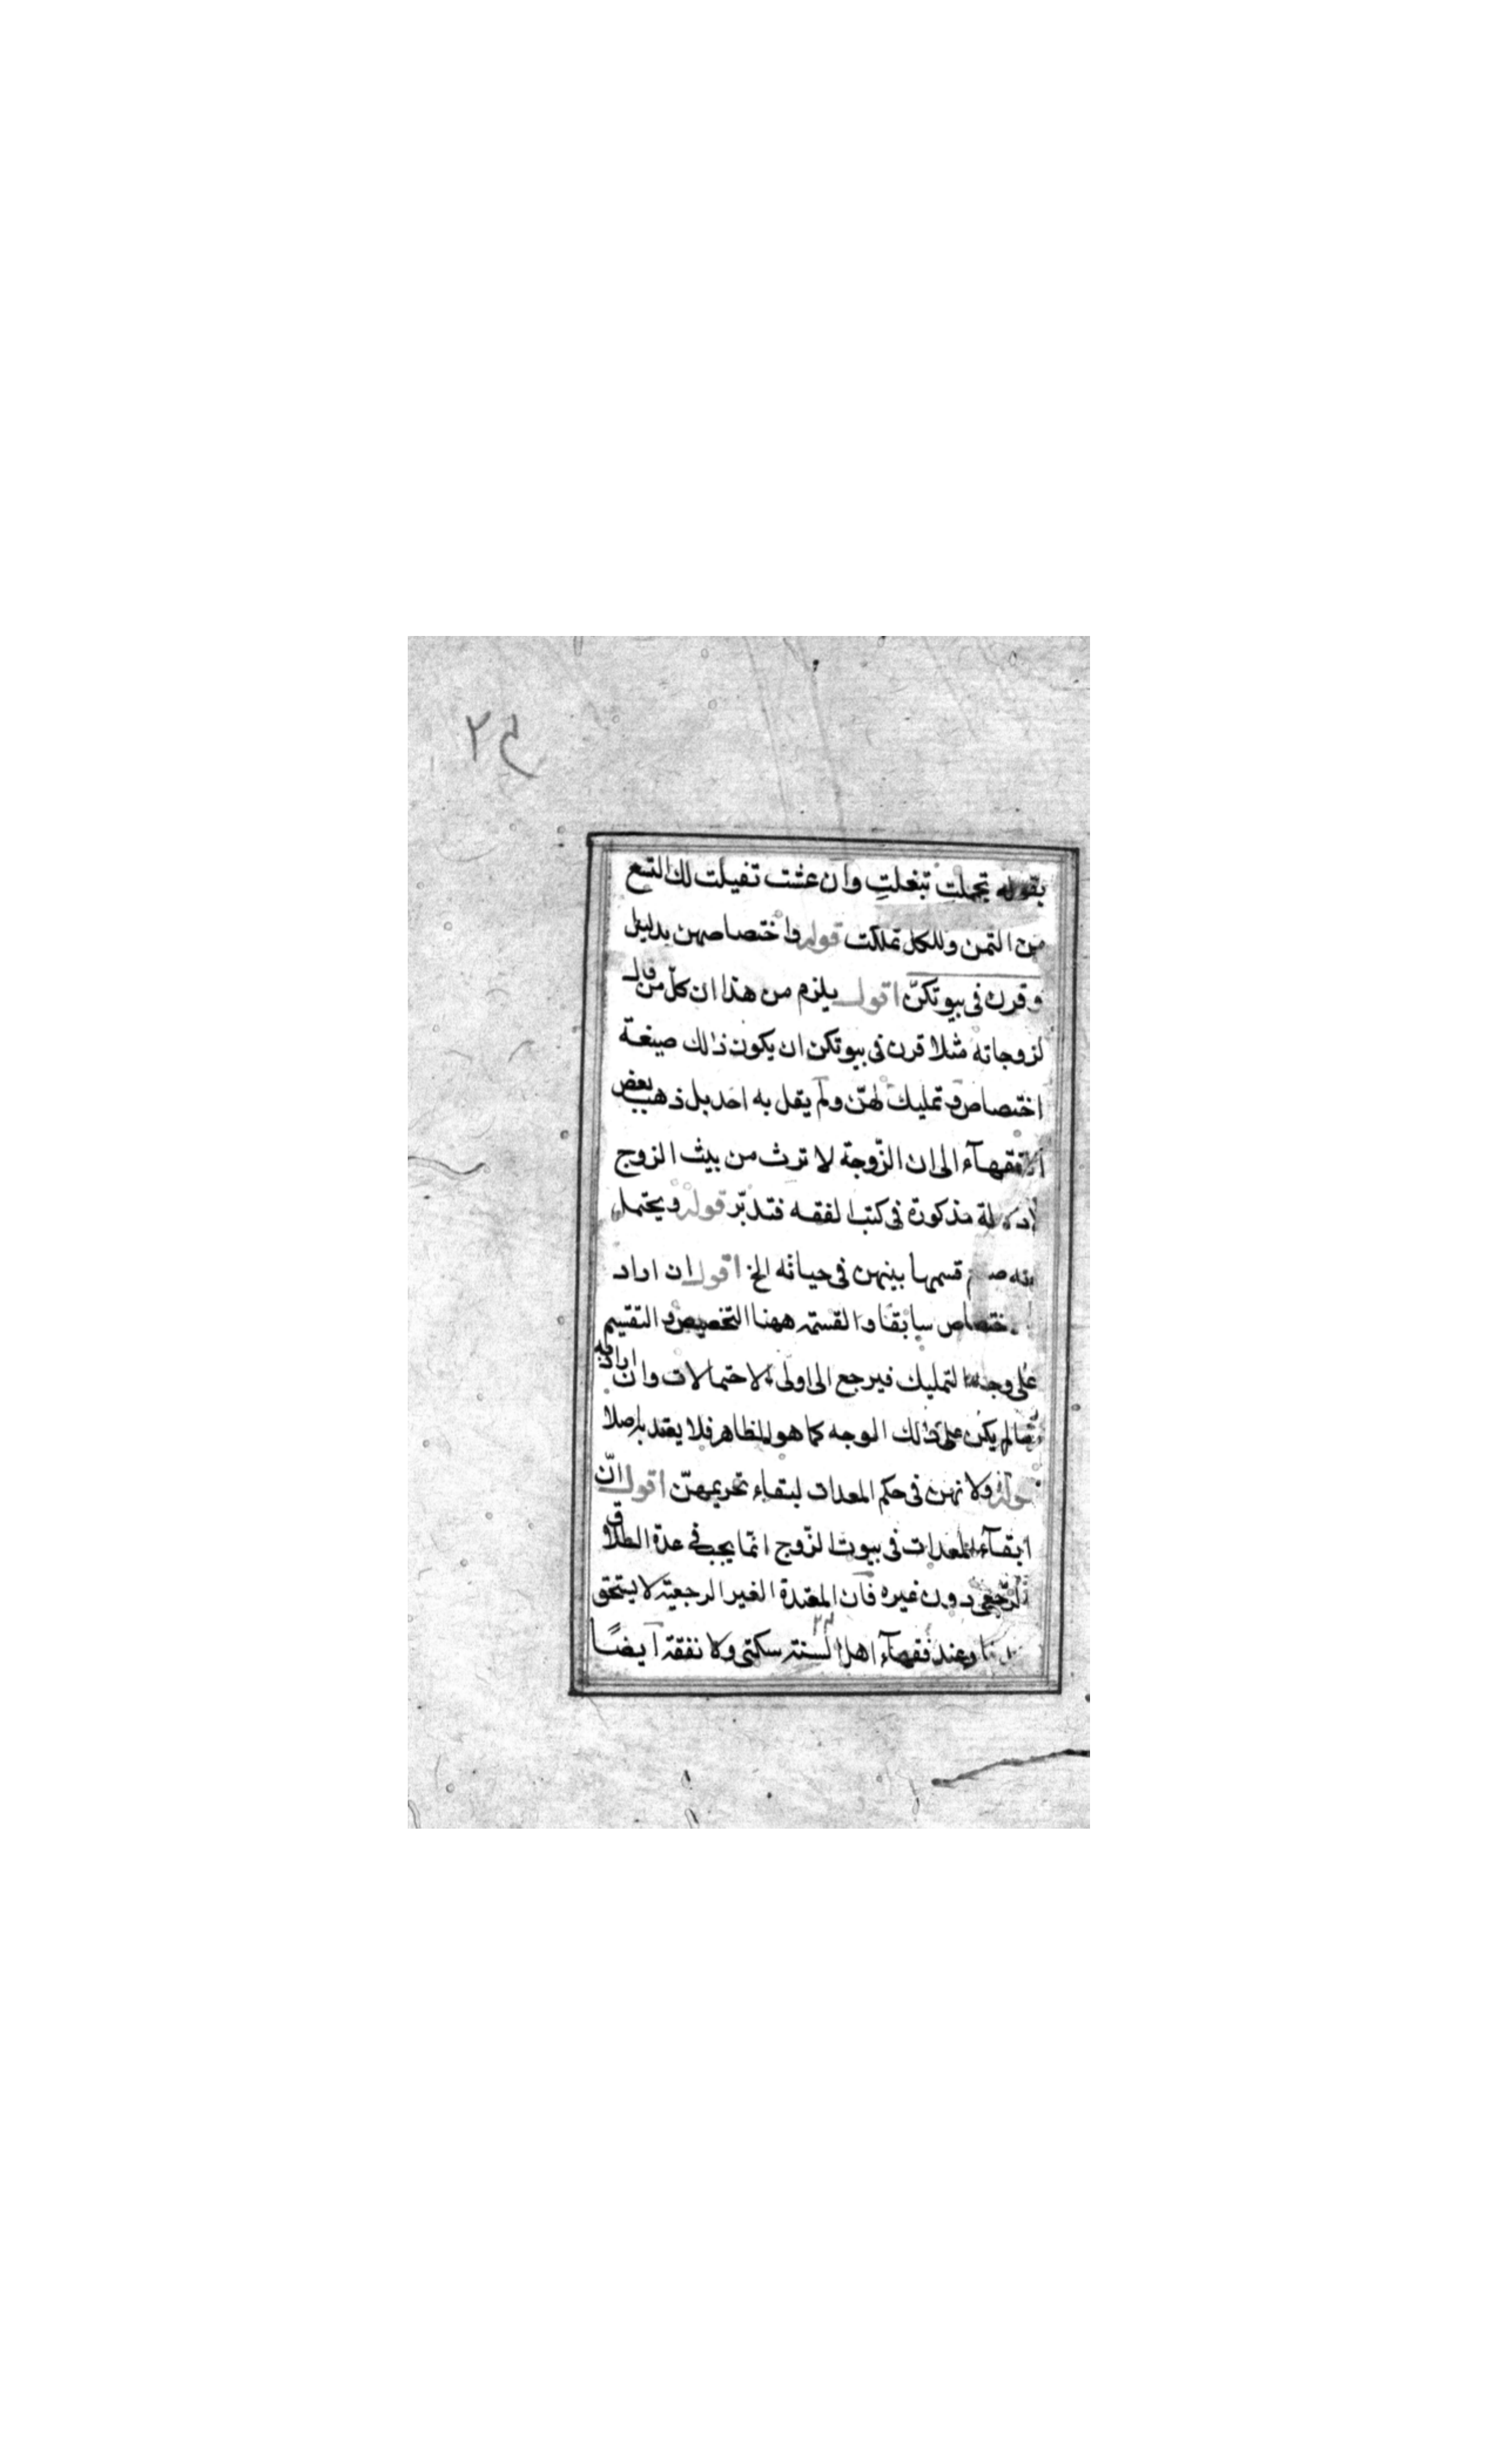 بقوله تجملت تبغلت وان عشت تفيلت لك التسع
من الثمن وللكل تملكت قوله واختصاصهن بدليل
وقرن فى بيوتكنّ اقول يلزم من هذا ان كلّ من قال
لزوجاته مثلا قرن فى بيوتكن ان يكون ذلك صيغة
اختصاص وتمليك لهنّ ولم يقل به احد بل ذهب بعض
الفقهآء الى ان الزّوجة لا ترث من بيت الزوج
لادلة مذكورة فى كتب الفقه فتدبّر قوله ويحتمل
انه صلعم قسمها بينهن فى حياته الخ اقول ان اراد
ختصاص سابقا والقسمة ههنا التخصيص والتقسيم
على وجه التمليك فيرجع الى اولى الاحتمالات وان اراد به
مالم يكن على ذلك الوجه كما هو الظاهر فلا يعتد به اصلا
قوله ولانهن فى حكم المعدات لبقاء تحريمهنّ اقول انّ
ابقآء المعدات فى بيوت الزّوج انّما يجب فى عدة الطلاق
الرّجعى دون غيره فان المعتدة الغير الرجعية لا يستحق
وعند فقهآء اهل السنة سكنى ولا نفقة ايضًا